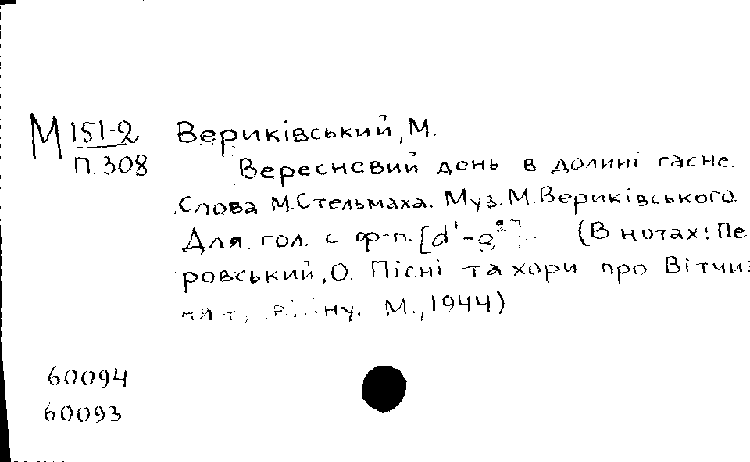 М 151-2 Вериківський, М.
П.308
Вересневий день в долині гасне.
Слова М.Стельмаха. Муз. М.Вериківського.
Для гол. с ф-п. [d¹-g²]. (В нотах: Пе
ровський, О. Пісні та хори про Вітчиз
війну. М., 1944)
60094
60093